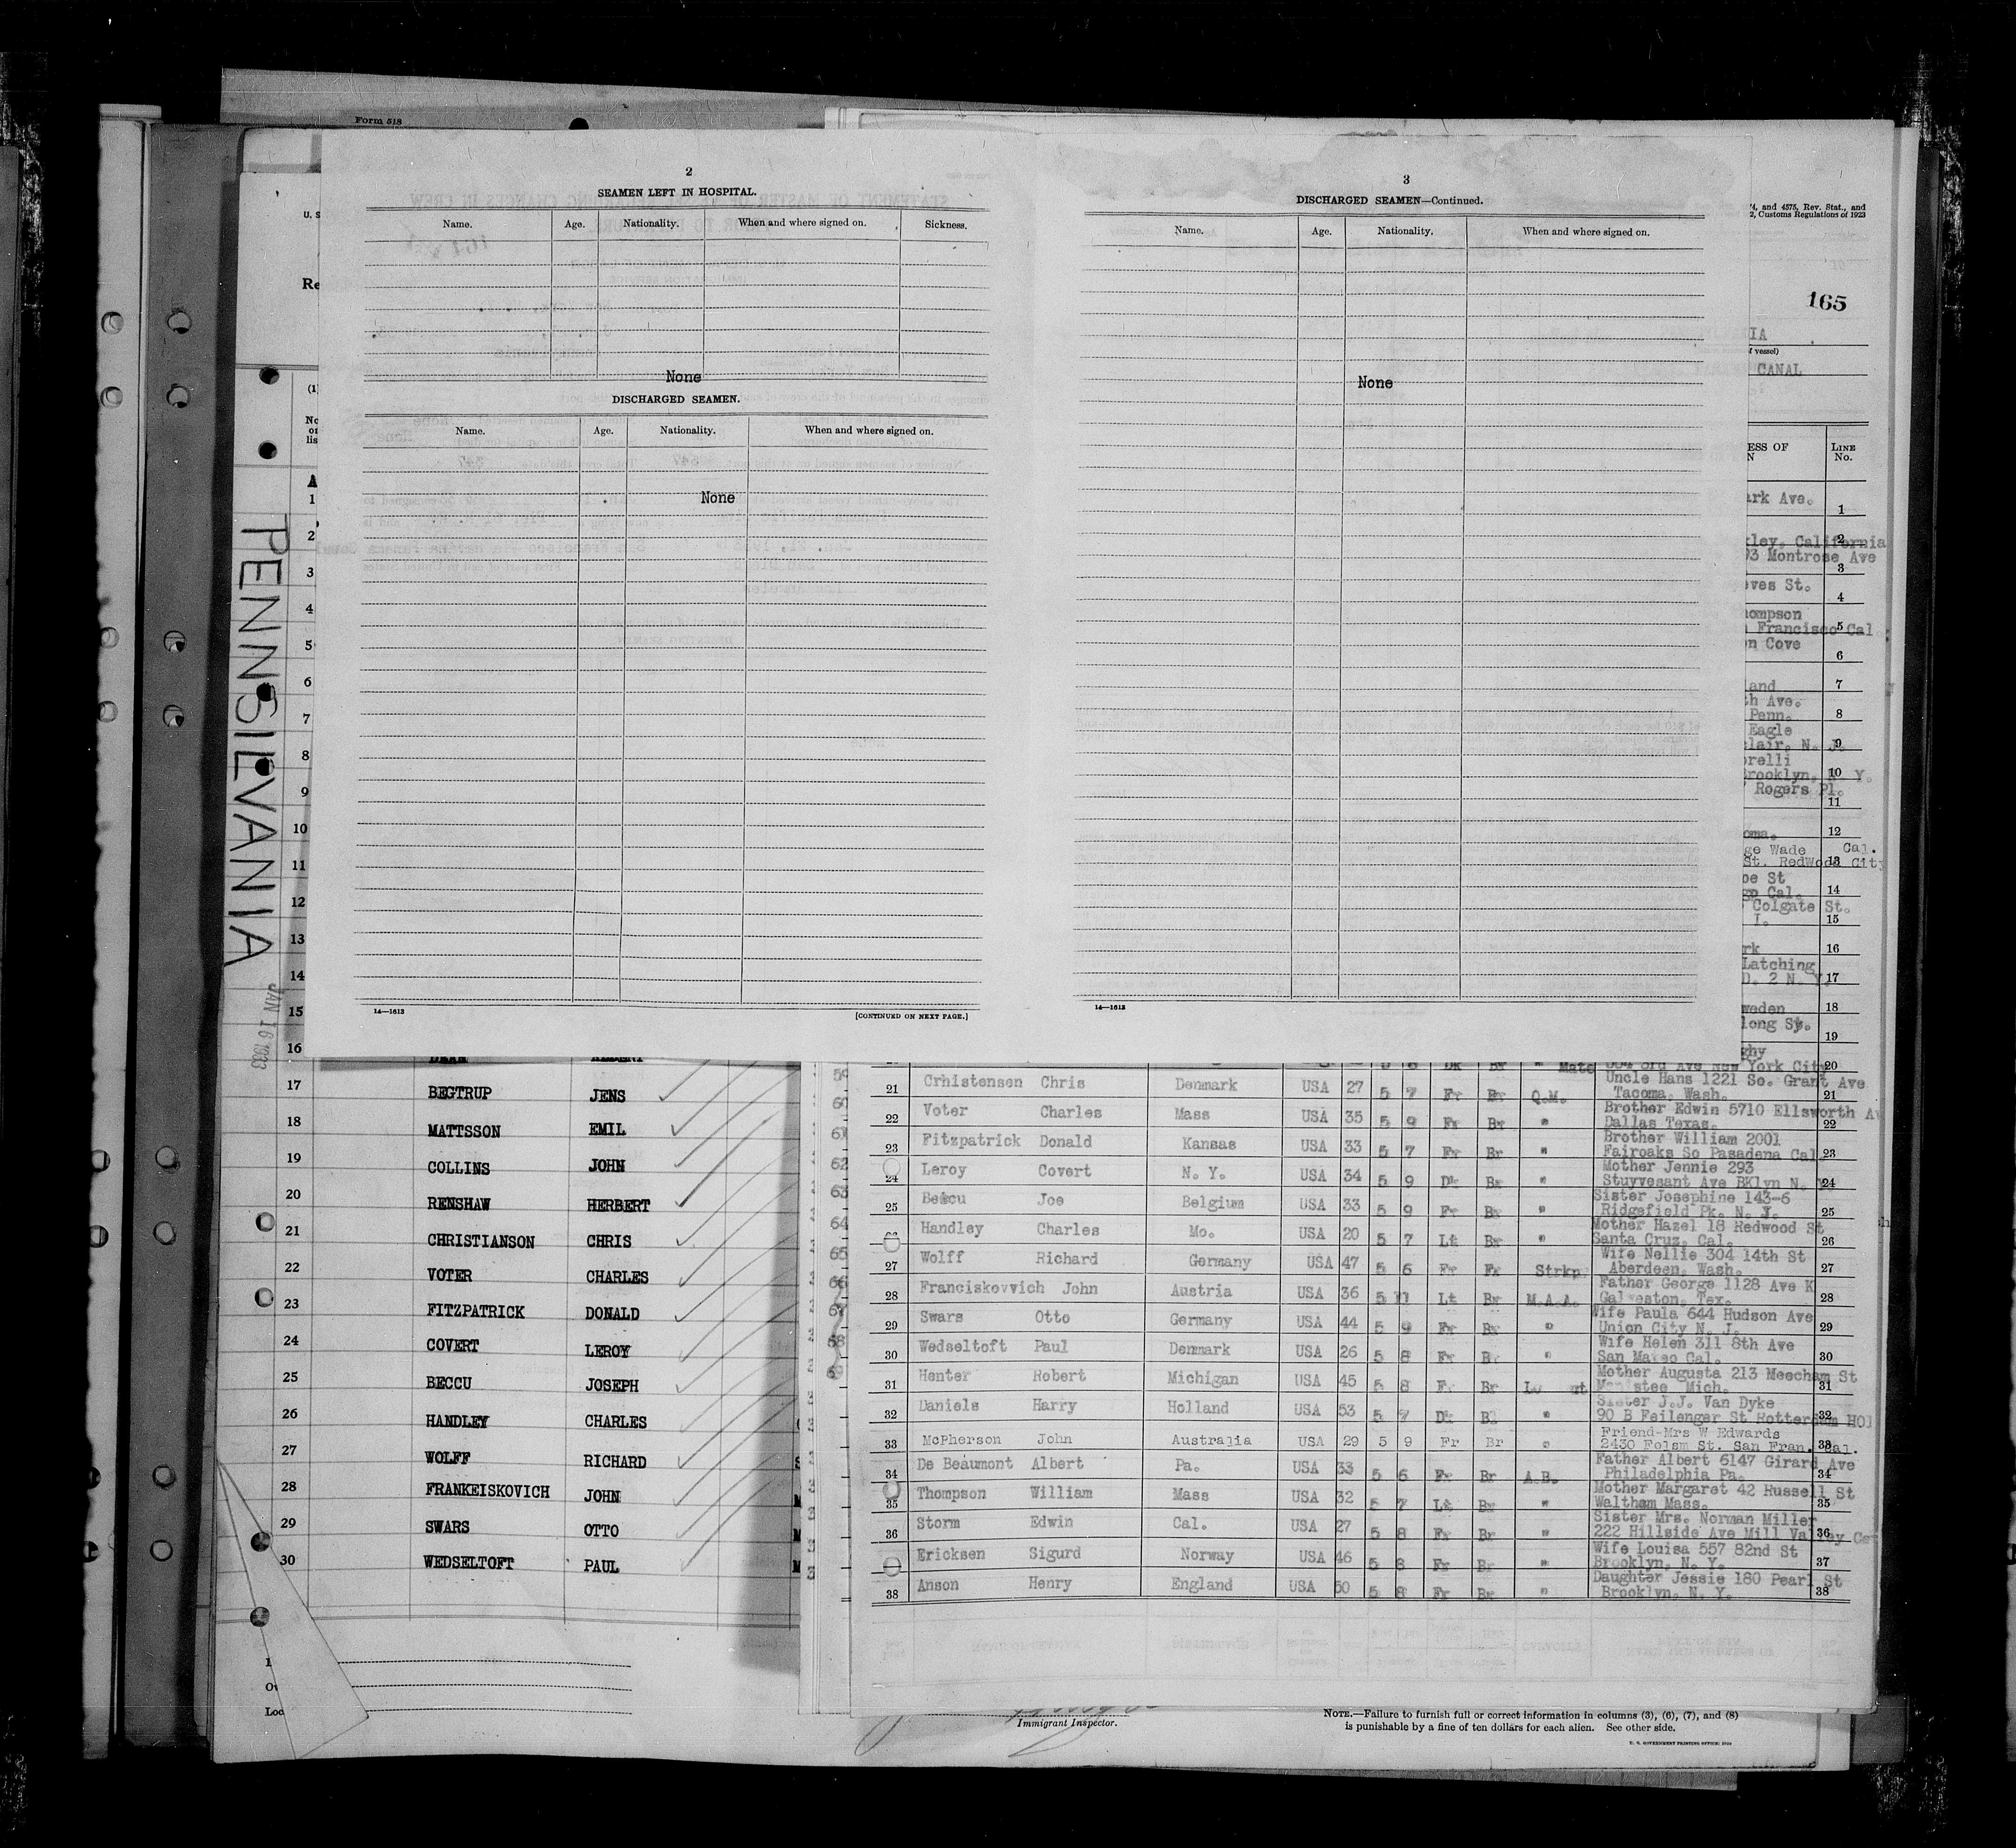 Form 518
2
SEAMEN LEFT IN HOSPITAL.
Name. Age. Nationality. When and where signed on. Sickness.
None
DISCHARGED SEAMEN.
Name. Age. Nationality. When and where signed on.
None
14—1613
[CONTINUED ON NEXT PAGE.]
3
DISCHARGED SEAMEN—Continued.
Name. Age. Nationality. When and where signed on.
None
14—1613
and 4575, Rev. Stat., and
2, Customs Regulations of 1923
165
IA
vessel)
CANAL
ESS OF
LINE
No.
ark Ave. 1
kley, California 2
93 Montrose Ave 3
eves St. 4
hompson
Francisco Cal 5
on Cove 6
land 7
th Ave.
Penn. 8
Eagle
clair, N. J. 9
orelli
Brooklyn, N. Y. 10
Rogers Pl. 11
oma. 12
ge Wade Cal.
St. Redwood City 13
oe St
go Cal. 14
Colgate St.
I. 15
rk 16
Latching
D. 2 N. Y. 17
weden 18
long St. 19
ghy
PENNSILVANIA
JAN 16 1933
U. S
Re
(1)
No
on
lis
A
1
2
3
4
5
6
7
8
9
10
11
12
13
14
15
16
17 BEGTRUP JENS
18 MATTSSON EMIL
19 COLLINS JOHN
20 RENSHAW HERBERT
21 CHRISTIANSON CHRIS
22 VOTER CHARLES
23 FITZPATRICK DONALD
24 COVERT LEROY
25 BECCU JOSEPH
26 HANDLEY CHARLES
27 WOLFF RICHARD
28 FRANKEISKOVICH JOHN
29 SWARS OTTO
30 WEDSELTOFT PAUL
59
60
61
62
63
64
65
66
67
68
69
Mate 604 3rd Ave New York City 20
21 Crhistensen Chris Denmark USA 27 5 7 Fr Br Q.M. Uncle Hans 1221 So. Grant Ave
Tacoma, Wash. 21
22 Voter Charles Mass USA 35 5 9 Fr Br " Brother Edwin 5710 Ellsworth Av
Dallas Texas. 22
23 Fitzpatrick Donald Kansas USA 33 5 7 Fr Br " Brother William 2001
Fairoaks So Pasadena Cal 23
24 Leroy Covert N. Y. USA 34 5 9 Dk Br " Mother Jennie 293
Stuyvesant Ave BKlyn N. 24
25 Beccu Joe Belgium USA 33 5 9 Fr Br " Sister Josephine 143-6
Ridgefield Pk. N. J. 25
Handley Charles Mo. USA 20 5 7 Lt Br " Mother Hazel 18 Redwood St
Santa Cruz, Cal. 26
27 Wolff Richard Germany USA 47 5 6 Fr Fr Strkp. Wife Nellie 304 14th St
Aberdeen, Wash. 27
28 Franciskovvich John Austria USA 36 5 11 Lt Br M.A.A. Father George 1128 Ave K
Galveston, Tex. 28
29 Swars Otto Germany USA 44 5 9 Fr Br " Wife Paula 644 Hudson Ave
Union City N. J. 29
30 Wedseltoft Paul Denmark USA 26 5 8 Fr Br " Wife Helen 311 8th Ave
San Mateo Cal. 30
31 Henter Robert Michigan USA 45 5 8 Fr Br Mother Augusta 213 Meecham St
Manistee Mich. 31
32 Daniels Harry Holland USA 53 5 7 Dk Bl " Sister J.J. Van Dyke
90 B Feilenger St Rotterdam HOl 32
33 McPherson John Australia USA 29 5 9 Fr Br " Friend-Mrs W Edwards
2430 Folsm St. San Fran. Cal. 33
34 De Beaumont Albert Pa. USA 33 5 6 Fr Br A.B. Father Albert 6147 Girard Ave
Philadelphia Pa. 34
35 Thompson William Mass USA 32 5 7 Lt Br " Mother Margaret 42 Russell St
Waltham Mass. 35
36 Storm Edwin Cal. USA 27 5 8 Fr Br " Sister Mrs. Norman Miller
222 Hillside Ave Mill Valley Cal 36
37 Ericksen Sigurd Norway USA 46 5 8 Fr Br " Wife Louisa 557 82nd St
Brooklyn, N. Y. 37
38 Anson Henry England USA 50 5 8 Fr Br " Daughter Jessie 180 Pearl St
Brooklyn, N. Y. 38
Immigrant Inspector.
NOTE.—Failure to furnish full or correct information in columns (3), (6), (7), and (8)
is punishable by a fine of ten dollars for each alien. See other side.